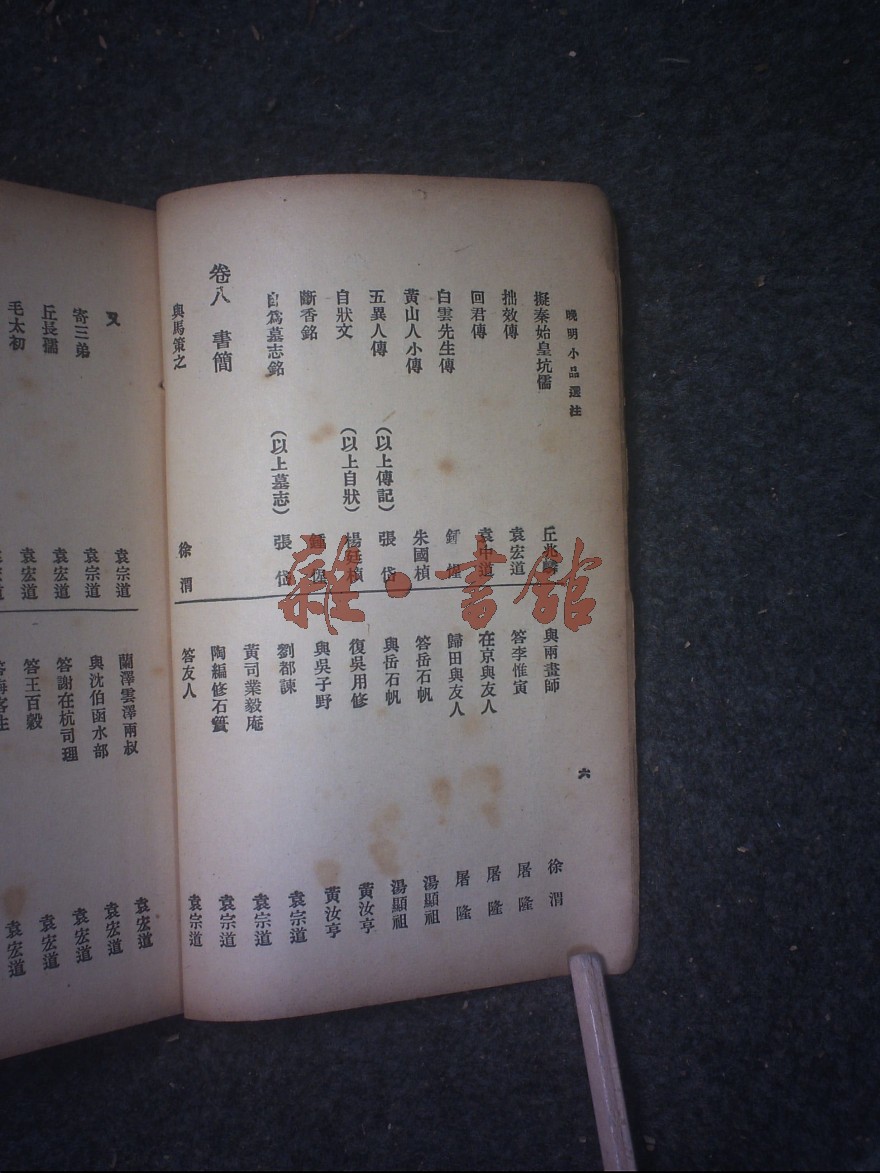 晚明小品選注
六
擬秦始皇坑儒 丘兆麟
拙效傳 袁宏道
回君傳 袁中道
白雲先生傳 鍾惺
黃山人小傳 朱國楨
五異人傳 （以上傳記） 張岱
自狀文 （以上自狀） 楊廷楨
斷香銘 鍾惺
自爲墓志銘 （以上墓志） 張岱
卷八 書簡
與馬策之 徐渭
與兩畫師 徐渭
答李惟寅 屠隆
在京與友人 屠隆
歸田與友人 屠隆
答岳石帆 湯顯祖
與岳石帆 湯顯祖
復吳用修 黃汝亨
與吳子野 黃汝亨
劉都諫 袁宗道
黃司業毅庵 袁宗道
陶編修石簣 袁宗道
答友人 袁宗道
又 袁宗道
寄三弟 袁宗道
丘長孺 袁宏道
毛太初 袁宏道
蘭澤雲澤兩叔 袁宏道
與沈伯函水部 袁宏道
答謝在杭司理 袁宏道
答王百穀 袁宏道
袁宏道
雜·書館